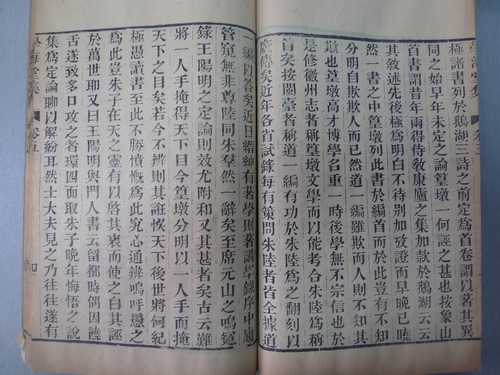 學海堂集
極諸書列於鵝湖三詩之前定爲首卷謂以著其異
同之始早年未定之論篁墩一何誣之甚也按象山
年譜謂昔年兩得侍教康廬之集加款於鵝湖云云
其敘述先後極爲明白不待別加攷證而早晚已曉
然一書之中篁墩列此書於編首而於此豈有不知
分明自欺欺人而已然道一編雖欺而人則不知其
欺也篁墩高才博學名重一時後學無不宗信也於
是修徽州志者稱篁墩文學而以能考合朱陸爲稱
首矣按閩臺者稱道一編有功於朱陸爲之翻刻以
廣傳矣近年各省試錄每有策問朱陸者皆全據道
一編以答矣近日縉紳有著學則者謂學錄序中
管窺無非尊陸同朱羣然一辭矣至席元山之鳴冤
錄王陽明之定論則效尤附和又其甚者矣古云難
將一人手掩得天下目今篁墩分明以一人手而掩
天下之目矣若今不辨則其誑悞天下後世將何紀
極愚讀書至此不勝憤慨爲此究心通辨嗚呼愚之
爲此豈朱子在天之靈有以啓其衷而使之白其誣
於萬世耶又曰王陽明與門人書云留都時偶因饒
舌遂致多口攻之者環四面取朱子晚年悔悟之說
集爲定論聊以解紛耳然士大夫見之乃往往遂有
學海堂集 卷五 四